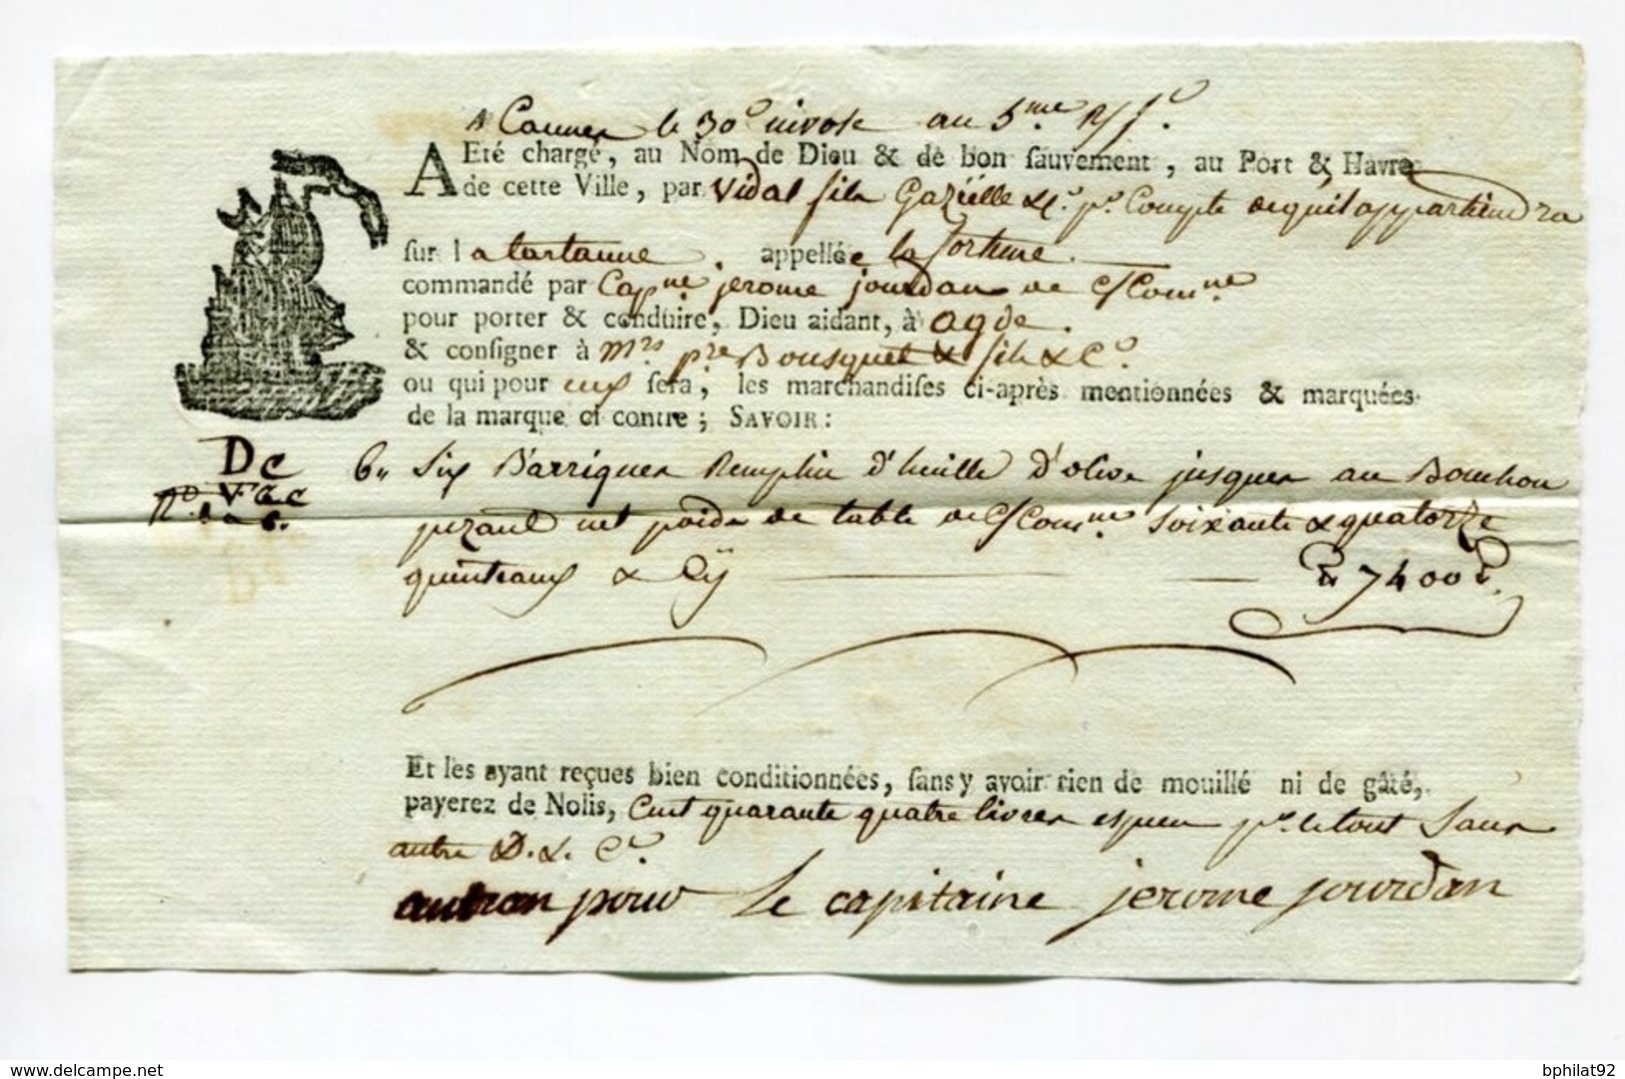 A Cannes le 30e nivose an 5me R/
A Eté chargé, au Nom de Dieu & de bon ſauvement, au Port & Havre
de cette Ville, par Vidal fils Gazielle & Ce pr Compte de qu'il appartiendra
ſur la tartanne appellée la fortune
commandé par Capne jerome jourdan de c/ Comne
pour porter & conduire, Dieu aidant, à agde.
& conſigner à Mrs pre Bousquet & fils & Ce
ou qui pour eux ſera, les marchandiſes ci-après mentionnées & marquées
de la marque ci contre; SAVOIR:
De
VGC
No. 1 a 6.
6 „ Six Barriques Remplie d'heuille d'olive jusques au Bouchon
pezant net poids de table de c/ Comne Soixante & quatorze
quinteaux & 7400
Et les ayant reçues bien conditionnées, ſans y avoir rien de mouillé ni de gâté,
payerez de Nolis, Cent quarante quatre livres especes pr. le tout Sans
autre D. &. Ce.
autran pour Le capitaine jerome jourdan
www.delcampe.net
bphilat92